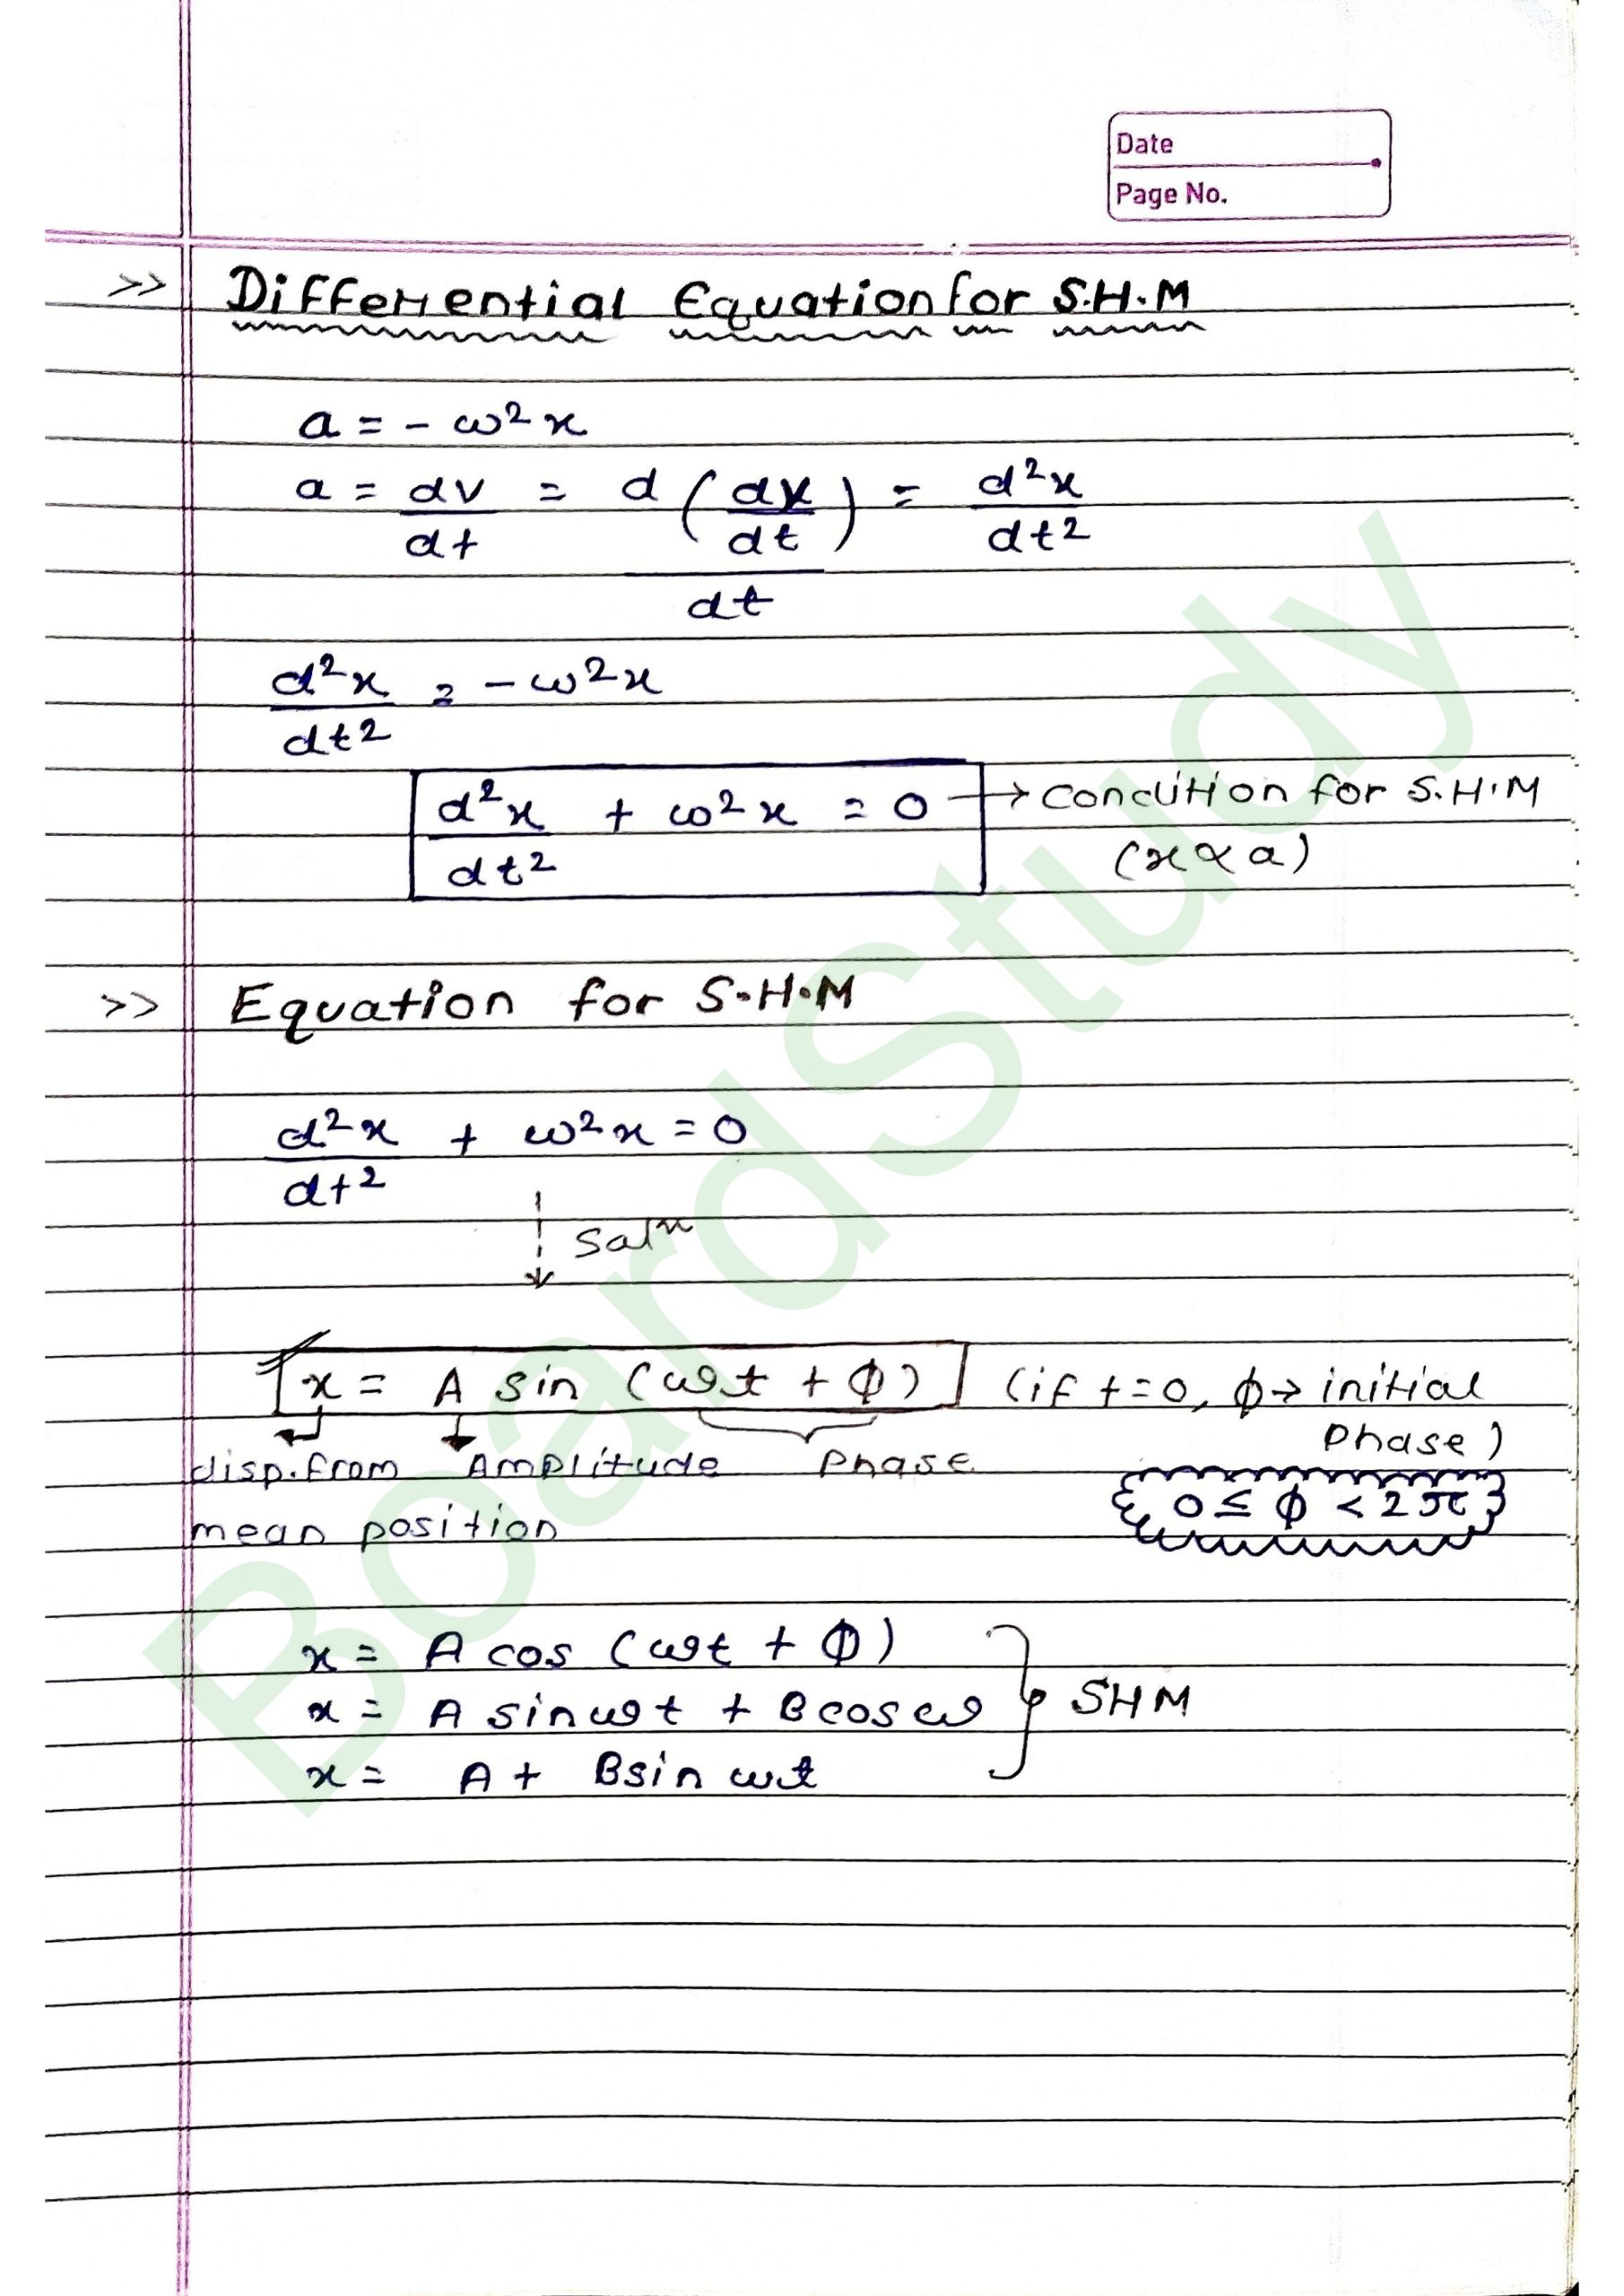 Date
Page No.
>> Differential Equation for S.H.M
a = - ω² x
a = dv/dt = d(dx/dt)/dt = d²x/dt²
d²x/dt² = - ω² x
d²x/dt² + ω² x = 0 → Condition for S.H.M
(x ∝ a)
>> Equation for S.H.M
d²x/dt² + ω² x = 0
Salⁿ
x = A sin (ωt + ϕ) (if t = 0, ϕ → initial
phase)
disp. from Amplitude Phase
0 ≤ ϕ < 2π
mean position
x = A cos (ωt + ϕ)
x = A sin ωt + B cos ω } SHM
x = A + B sin ωt
BoardStudy